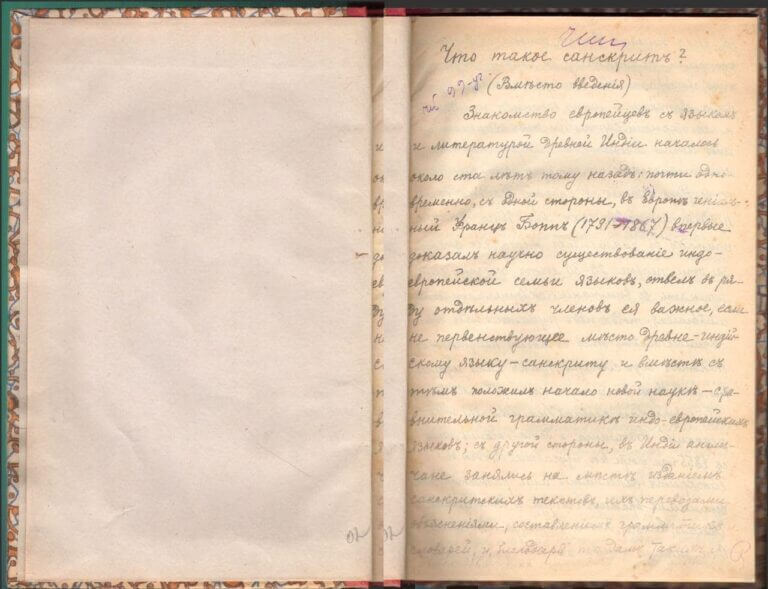 Что такое санскритъ?
(Вмѣсто введенія)
Знакомство европейцевъ съ языкомъ
и литературой древней Индіи началось
около ста лѣтъ тому назадъ: почти одно-
временно, съ одной стороны, въ Европѣ геніаль-
ный Францъ Боппъ (1791-1867) впервые
доказалъ научно существованіе индо-
европейской семьи языковъ, отвелъ въ ря-
ду отдѣльныхъ членовъ ея важное, если
не первенствующее мѣсто древне-индій-
скому языку - санскриту и вмѣстѣ съ
тѣмъ положилъ начало новой наукѣ - сра-
внительной грамматикѣ индо-европейскихъ
языковъ; съ другой стороны, въ Индіи англи-
чане занялись на мѣстѣ изданіемъ
санскритскихъ текстовъ, ихъ переводами
объясненіями, составленіемъ грамматикъ
словарей, и, благодаря